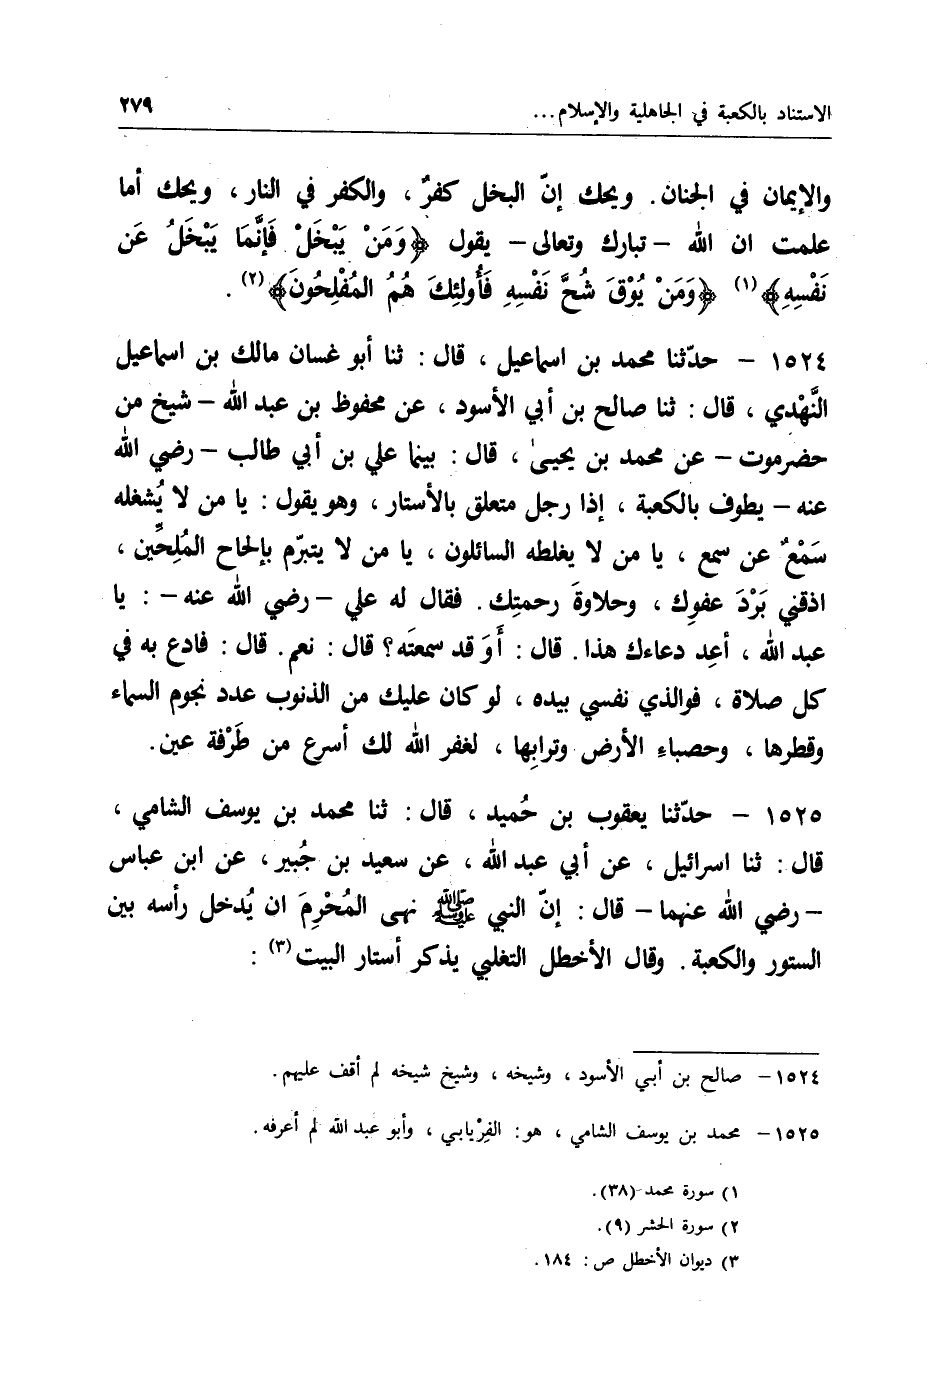 الاستناد بالكعبة في الجاهلية والإسلام... ٢٧٩
والإيمان في الجنان. ويحك إنّ البخل كفرٌ ، والكفر في النار ، ويحك أما
علمت ان الله – تبارك وتعالى – يقول ﴿وَمَنْ يَبْخَلْ فَإنَّمَا يَبْخَلُ عَن
نَفْسِهِ﴾(١) ﴿وَمَنْ يُوْقَ شُحَّ نَفْسِهِ فَأُولئِكَ هُمُ المُفْلِحُونَ﴾(٢) .
١٥٢٤ – حدّثنا محمد بن اسماعيل ، قال : ثنا أبو غسان مالك بن اسماعيل
النَّهْدي ، قال : ثنا صالح بن أبي الأسود ، عن محفوظ بن عبد الله – شيخ من
حضرموت – عن محمد بن يحيىٰ ، قال : بينما علي بن أبي طالب – رضي الله
عنه – يطوف بالكعبة ، إذا رجل متعلق بالأستار ، وهو يقول : يا من لا يُشغله
سَمْعٌ عن سمع ، يا من لا يغلطه السائلون ، يا من لا يتبرّم بإلحاح المُلِحِّين ،
اذقني بَرْدَ عفوِك ، وحلاوةَ رحمتِك. فقال له علي – رضي الله عنه – : يا
عبد الله ، أعِد دعاءك هذا. قال : أَوَ قد سمعتَه؟ قال : نعم. قال : فادع به في
كل صلاة ، فوالذي نفسي بيده ، لو كان عليك من الذنوب عدد نجوم السماء
وقطرها ، وحصباءِ الأرض وترابِها ، لغفر الله لك أسرع من طَرْفة عين.
١٥٢٥ – حدّثنا يعقوب بن حُميد ، قال : ثنا محمد بن يوسف الشامي ،
قال : ثنا اسرائيل ، عن أبي عبد الله ، عن سعيد بن جُبير ، عن ابن عباس
– رضي الله عنهما – قال : إنّ النبي ﷺ نهى المُحْرِمَ ان يُدخل رأسه بين
الستور والكعبة . وقال الأخطل التغلبي يذكر أستار البيت(٣) :
١٥٢٤– صالح بن أبي الأسود ، وشيخه ، وشيخ شيخه لم أقف عليهم.
١٥٢٥– محمد بن يوسف الشامي ، هو : الفِرْيابي ، وأبو عبد الله لم أعرفه.
١) سورة محمد (٣٨).
٢) سورة الحشر (٩).
٣) ديوان الأخطل ص : ١٨٤.